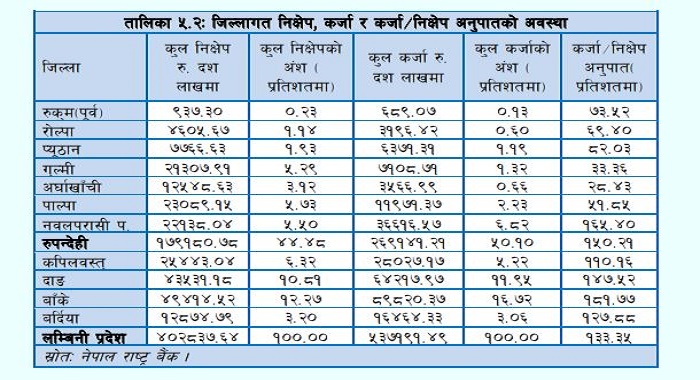 तालिका ५.२: जिल्लागत निक्षेप, कर्जा र कर्जा/निक्षेप अनुपातको अवस्था
जिल्ला | कुल निक्षेप रु. दश लाखमा | कुल निक्षेपको अंश ( प्रतिशतमा) | कुल कर्जा रु. दश लाखमा | कुल कर्जाको अंश ( प्रतिशतमा) | कर्जा/निक्षेप अनुपात( प्रतिशतमा)
रुकुम(पूर्व) ९३७.३० ०.२३ ६८९.०७ ०.१३ ७३.५२
रोल्पा ४६०५.६७ १.१४ ३१९६.४२ ०.६० ६९.४०
प्यूठान ७७६६.६३ १.९३ ६३७१.३१ १.१९ ८२.०३
गुल्मी २१३०७.९१ ५.२९ ७१०८.७१ १.३२ ३३.३६
अर्घाखाँची १२५४८.६३ ३.१२ ३५६६.९९ ०.६६ २८.४३
पाल्पा २३०८९.१५ ५.७३ ११९७१.३७ २.२३ ५१.८५
नवलपरासी प. २२१३८.०४ ५.५० ३६६१६.५७ ६.८२ १६५.४०
रुपन्देही १७९१८०.७८ ४४.४८ २६९१४१.२१ ५०.१० १५०.२१
कपिलवस्तु २५४४३.०४ ६.३२ २८०२७.१७ ५.२२ ११०.१६
दाङ ४३५३१.१८ १०.८१ ६४२१७.९७ ११.९५ १४७.५२
बाँके ४९४१४.५२ १२.२७ ८९८२०.३७ १६.७२ १८१.७७
बर्दिया १२८७४.७९ ३.२० १६४६४.३३ ३.०६ १२७.८८
लुम्बिनी प्रदेश ४०२८३७.६४ १००.०० ५३७१९१.४९ १००.०० १३३.३५
स्रोत: नेपाल राष्ट्र बैंक ।